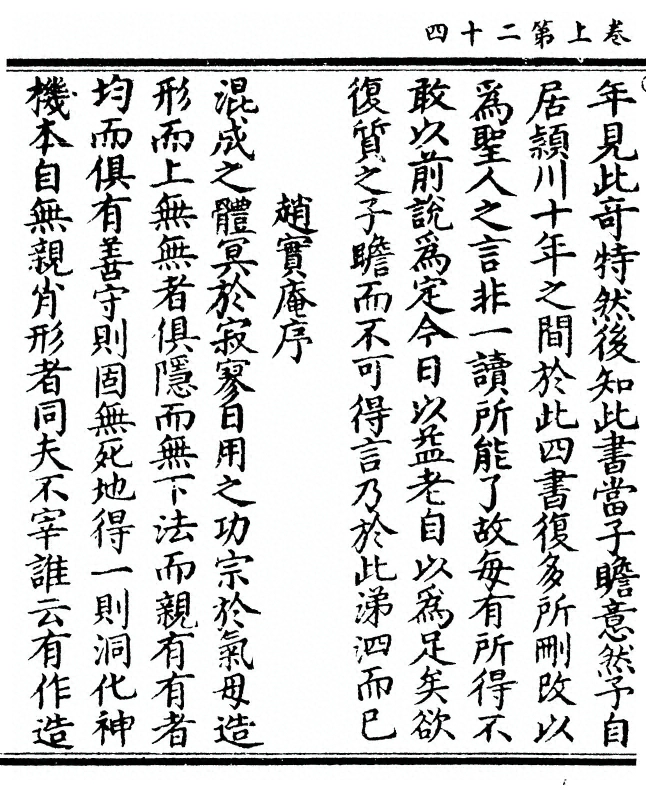 卷上第二十四
年見此奇特然後知此書當子瞻意然予自
居潁川十年之間於此四書復多所刪改以
爲聖人之言非一讀所能了故每有所得不
敢以前說爲定今日以益老自以爲足矣欲
復質之子瞻而不可得言乃於此涕泗而已
趙實庵序
混成之體冥於寂寥日用之功宗於氣母造
形而上無無者俱隱而無下法而親有有者
均而俱有善守則固無死地得一則洞化神
機本自無親肖形者同夫不宰誰云有作造